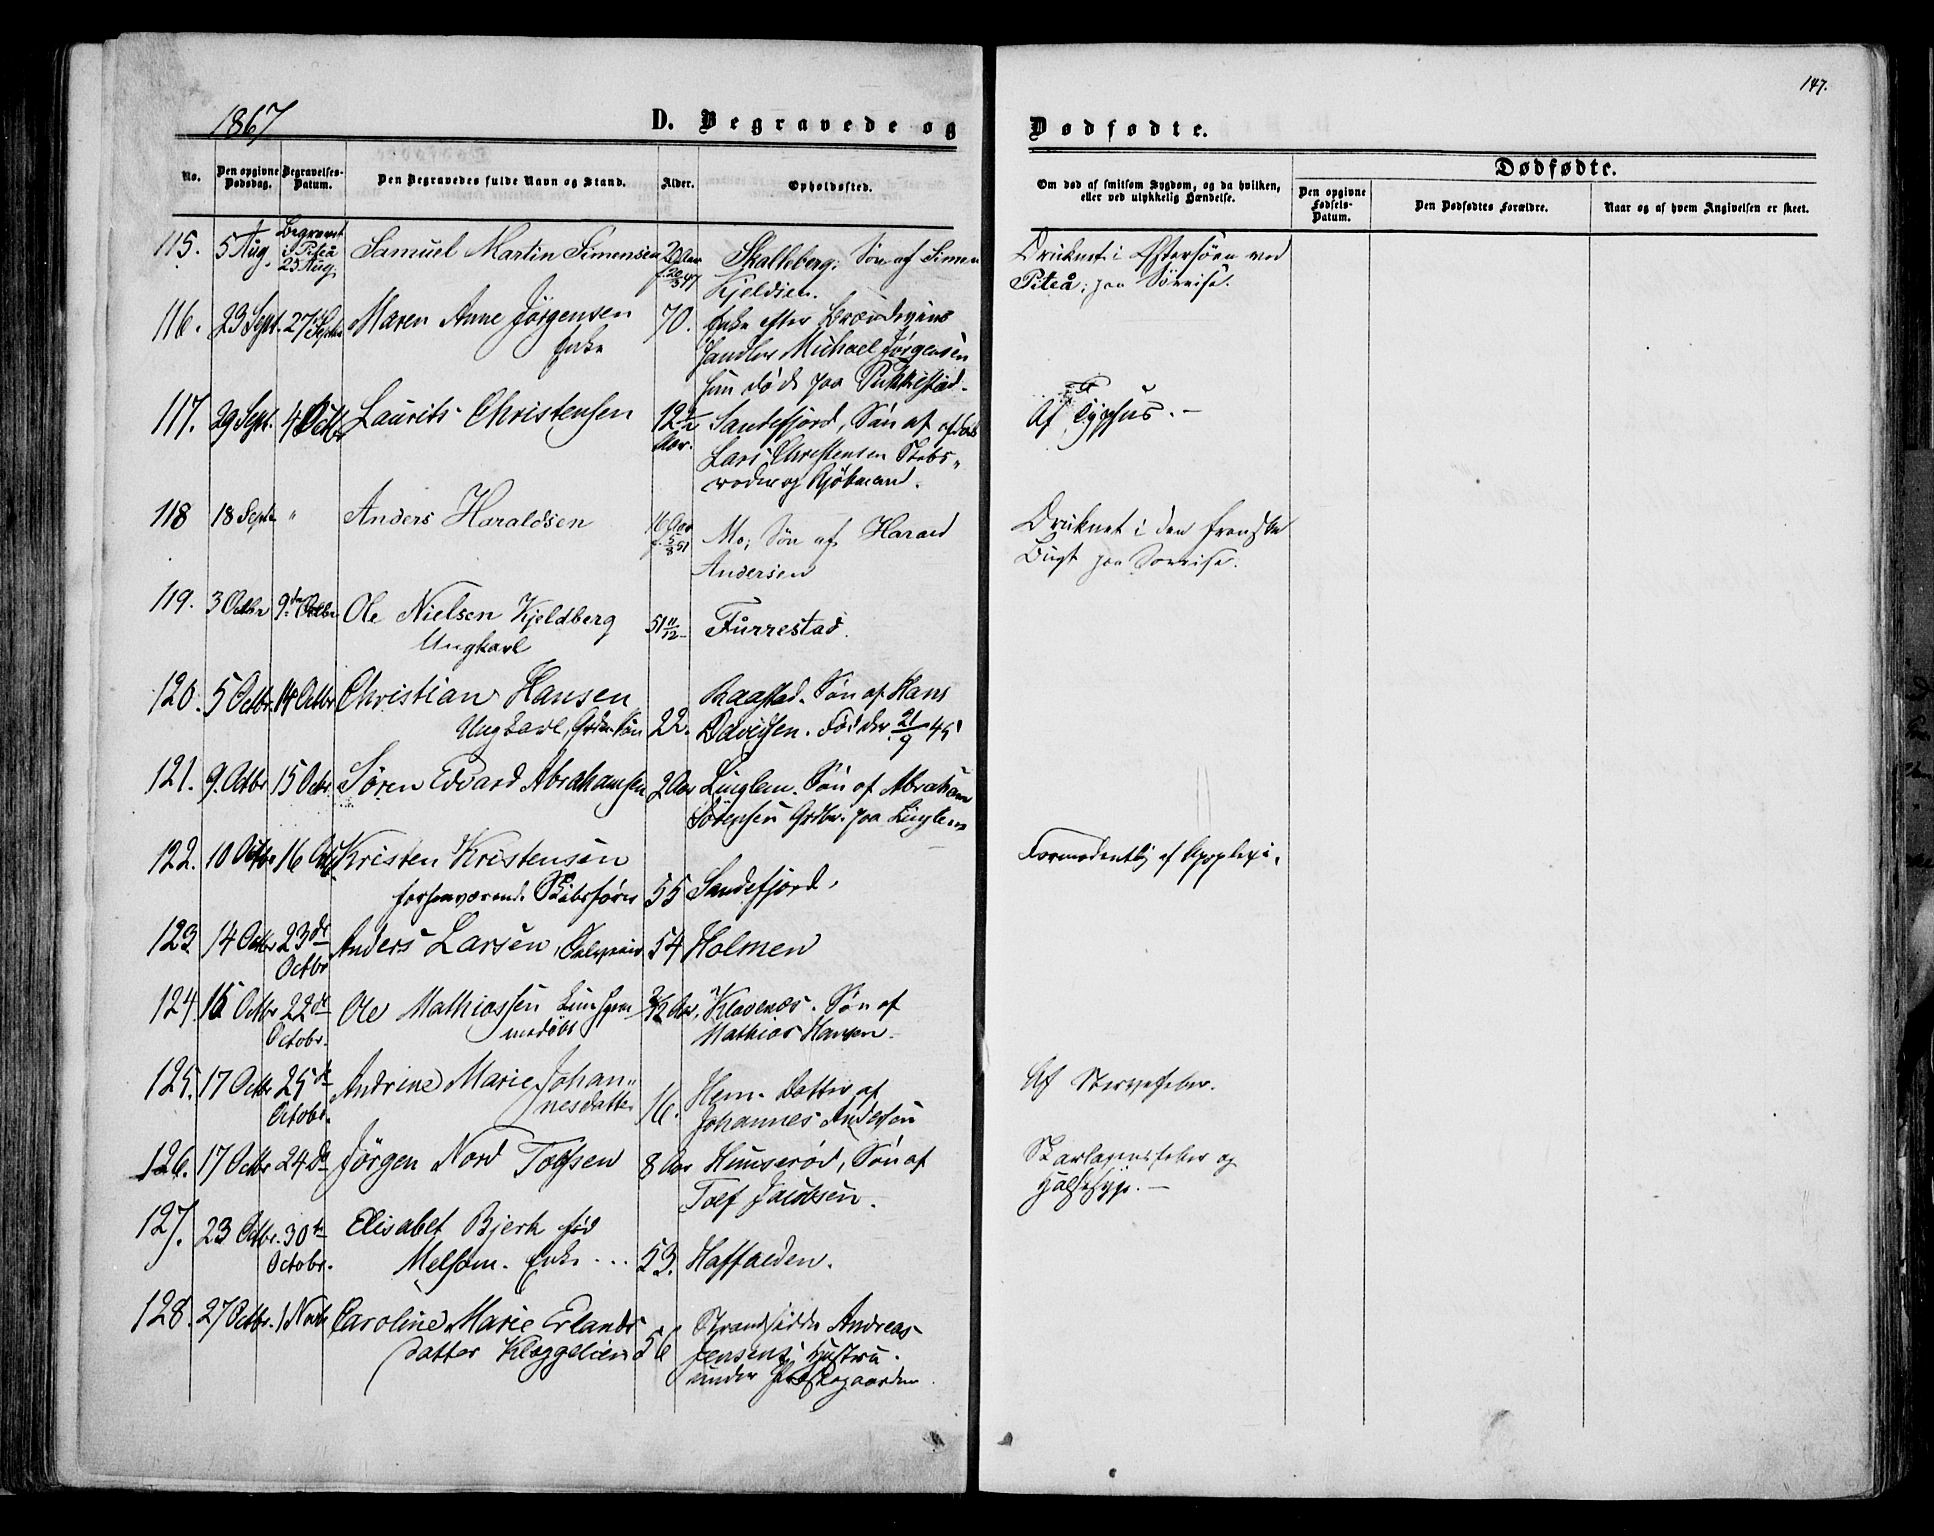 147.
1867
D. Begravede og
Dødfødte.
No.
Den opgivne Dødsdag.
Begravelses-Datum.
Den Begravedes fulde Navn og Stand.
Alder.
Opholdssted.
Om død af smitsom Sygdom, og da hvilken, eller ved ulykkelig Hændelse.
Dødfødte.
Den opgivne Fødsels-Datum.
Den Dødfødtes Forældre.
Naar og af hvem Angivelsen er skeet.
115. 5 Aug. Begravet i Piteå 25 Aug. Samuel Martin Simensen 20 Aar Skalleberg. Søn af Simen Druknet i Østersøen ved
Kjeldsen. Piteå, paa Søreise.
116. 23 Sept. 27 Septbr Maren Anne Jørgensen 70. Enke efter Brændeviins
Enke handler Michael Jørgensen
hun døde paa Pukkestad.
117. 29 Sept. 4 Octbr Laurits Christensen 12 1/2 Aar. Sandefjord, Søn af afdøde Af Typhus.
Lars Christensen Skibs„
reder og Kjøbmand.
118 18 Septr " Anders Haraldsen 16 Aar f. 5/8 51 Mo, Søn af Harald Druknet i den franske
Andersen Bugt paa Søreise.
119. 3 Octbr 9de Octbr Ole Nielsen Kjeldberg 51 11/12 Furrestad.
Ungkarl
120. 5 Octbr. 14 Octbr Christian Hansen 22. Raastad. Søn af Hans
Ungkarl, Grdbr. Søn Davidsen. Fød den 21/9 45
121. 9. Octbr 15 Octbr. Søren Edvard Abrahamsen 2 Aar Linglem. Søn af Abraham
Sörensen Grdbr. paa Linglem
122. 10 Octbr 16 Octbr Kristen Kristensen 55 Sandefjord. Formodentlig af Apoplexi.
forhenværende Skibsfører
123 14 Octbr 23de Octbr Anders Larsen, 54 Holmen
124. 15 Octbr 22de Octobr. Ole Mathiassen Klavenæs. Søn af
Mathias Hansen.
125. 17 Octbr 25de Octobr. Andrine Marie Johan„ 16. Hem. Datter af Af Nervefeber.
nesdatter Johannes Andersen
126. 17 Octbr 24de Jørgen Nord Tolfsen 8 Aar Hunserød, Søn af Skarlagensfeber og
Tolf Jacobsen. Halssyge.
127. 23 Octbr. 30te Octobr. Elisabet Bjerk fød
Melsom. Enke ... 53. Haffalden.
128. 27 Octbr. 1 Novbr Caroline Marie Erlands 56 Strandsidder Andreas
datter Kleggelien Jensens Hustru.
under Præstegaarden.